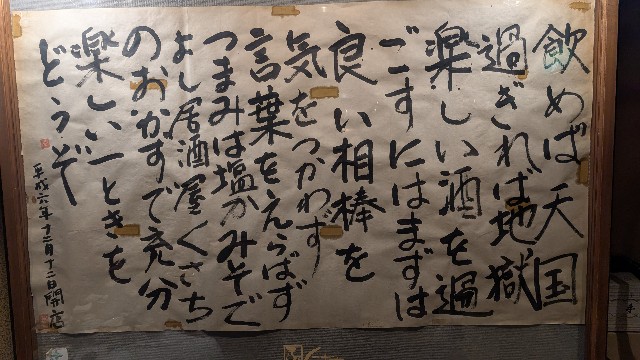 飲めば天国
過ぎれば地獄
楽しい酒を過
ごすにはまずは
良い相棒を
気をつかわず
言葉をえらばず
つまみは塩かみそで
よし居酒屋くさち
のおかずで充分
楽しい一ときを
どうぞ
平成六年十二月十二日開店